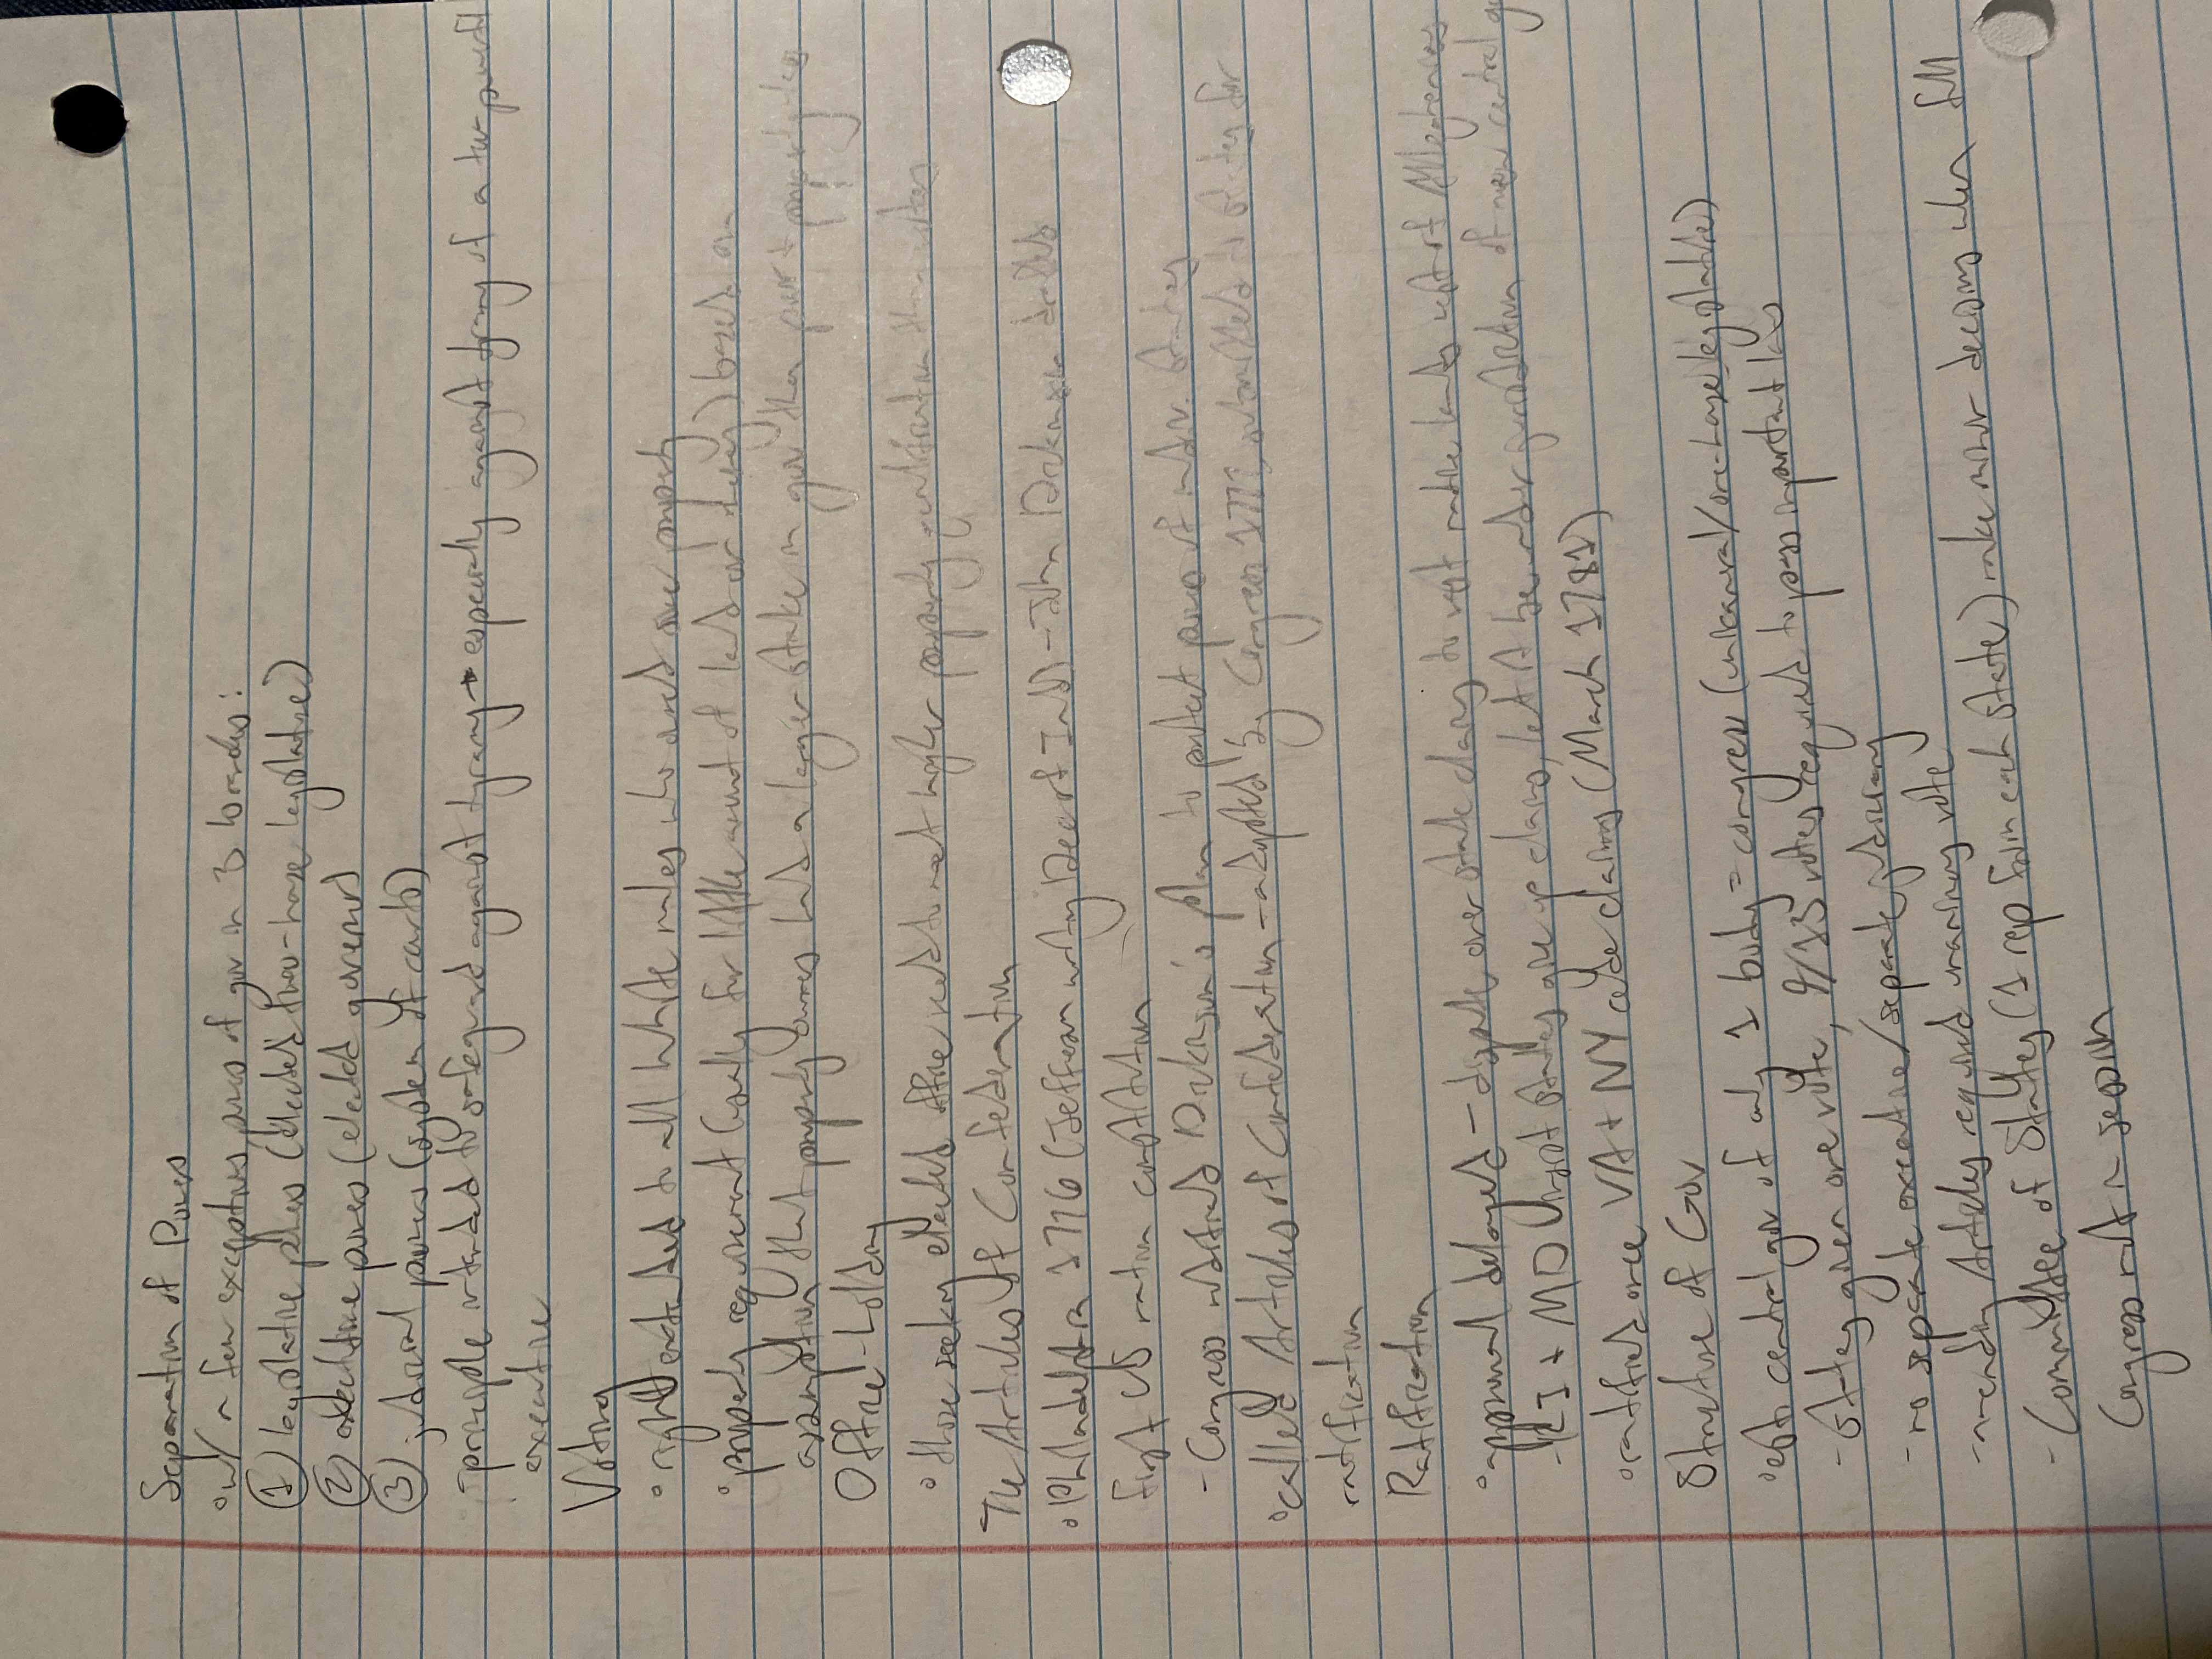 Separation of Powers
° w/ a few exceptions, powers of gov in 3 branches:
① legislative powers (elected two-house legislature)
② executive powers (elected governor)
③ judicial powers (system of courts)
principle intended to safeguard against tyranny - especially against tyranny of a too-powerful
executive
Voting
° right extended to all white males who owned some property
° property requirement (usually for little amount of land or money) based on
assumption that property owners had a larger stake in gov than poor + property-less
Office-Holding
° those seeking elected office need to meet higher property qualification than voters
The Articles of Confederation
° Philadelphia 1776 (Jefferson writing Dec of Ind) - John Dickinson drafts
first US nation constitution
- Congress modified Dickinson's plan to protect powers of indiv. states
° called Articles of Confederation - adopted by Congress 1777, submitted to states for
ratification
Ratification
° approval delayed - dispute over state claims to vast native lands west of Alleghenies
- RI + MD insist states give up claims, let it be under jurisdiction of new central
° ratified once VA + NY cede claims (March 1781)
Structure of Gov
° estb central gov of only 1 body = congress (unicameral/one-house legislature)
- states given one vote, 9/13 votes required to pass important laws
- no separate executive/separate judiciary
- amending Articles required unanimous vote
- Committee of States (1 rep from each state) make minor decisions when full
Congress not in session